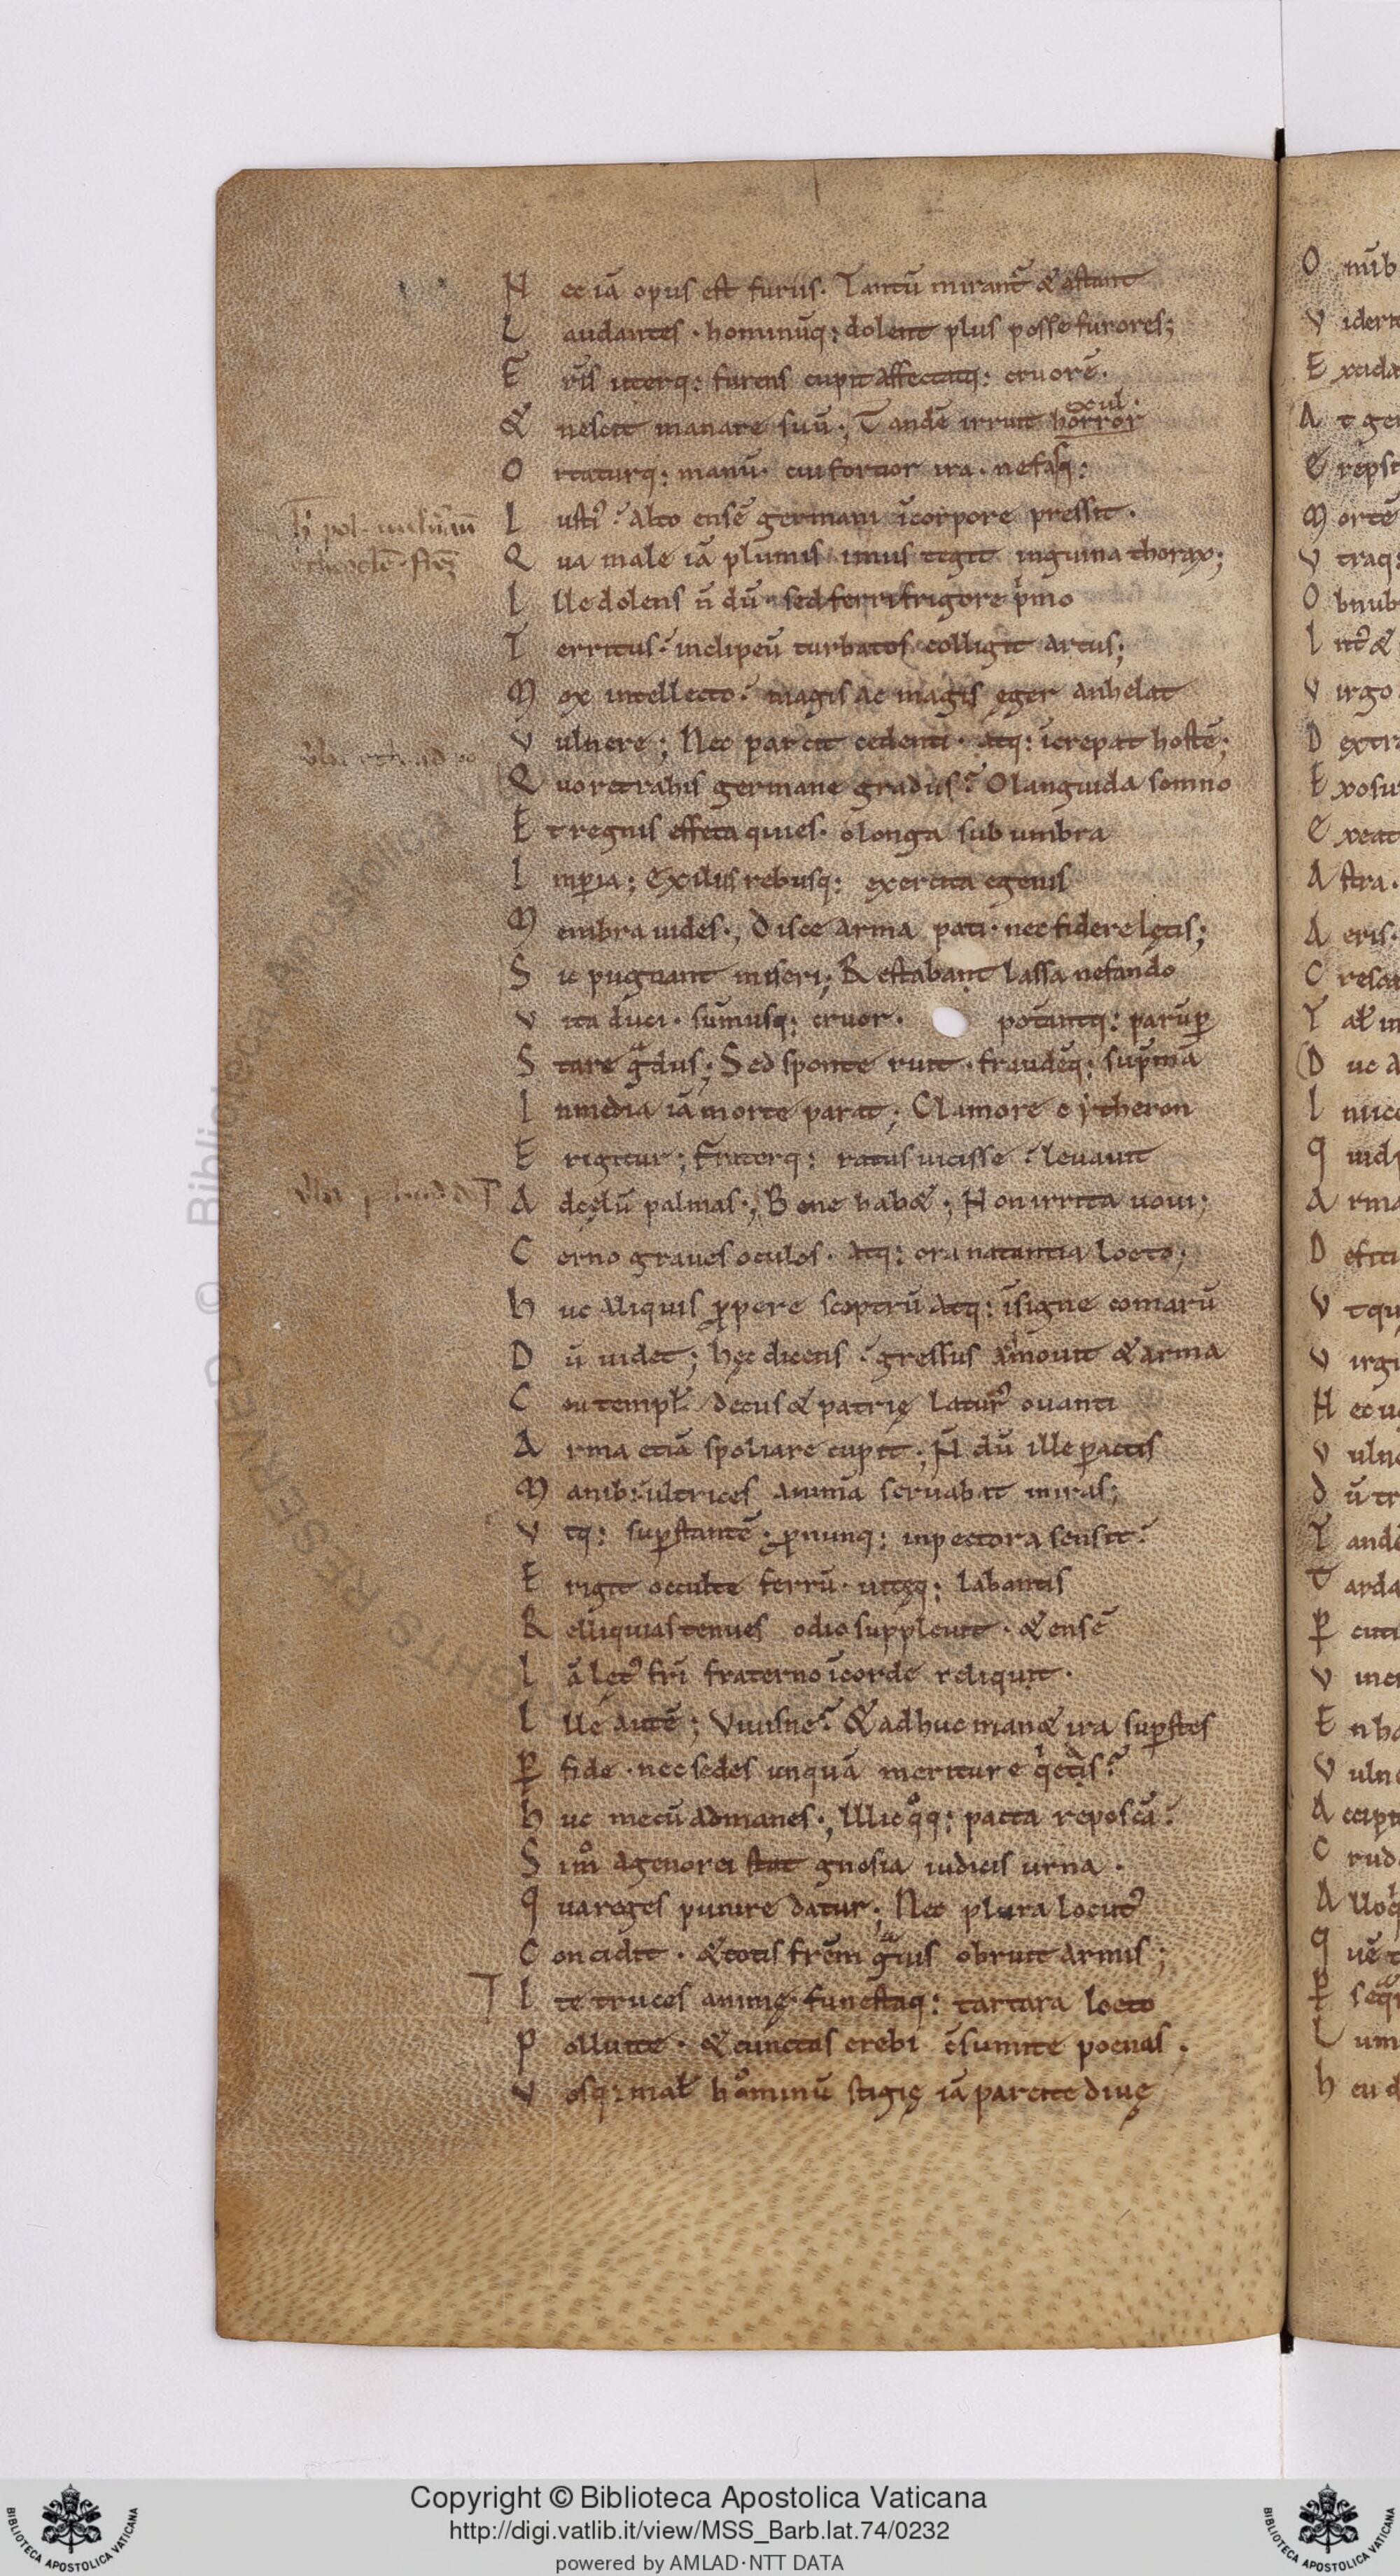 N ec iā opus est furiis. Tantū mirant̄ & astant
L audantes · hominūq; dolent plus posse furores;
F r̄is uterq; furens cupit affectatq; cruorē.
& nescit manare suū·, Tandē irruit horror
exul·
O rtaturq; manū· cui fortior ira · nefasq;
I usti᷒ Alto ensē germani īcorpore pressit·
Q ua male iā plumis imus tegit inguina thorax;
I lle dolens n̄ dū· sed ferri frigore p̄mo
T erritus· inclipeū turbatos colligit artus;
M ox intellecto· magis ac magis ęger anhelat
V ulnere; Nec parcit cedenti· atq; īcrepat hostē;
Q uo retrahis germane gradus? O languida somno
E t regnis effeta quies· o longa sub umbra
I mp̄ia; Exiliis rebusq; exercita egenis
M embra uides·, Disce arma pati· nec fidere lętis;
S ic pugnant miseri; Restabant lassa nefando
V ita duci· sūmusq; cruor· potantq; parūp̄
S tare g̃dus; Sed sponte ruit· fraudēq; sup̄mā
I nmedia iā morte parat; Clamore cytheron
E rigitur; Fraterq; ratus uicisse· leuauit
A dcęlū palmas·, Bene hab&; Non irrita uoui;
C erno graues oculos· atq; ora natantia loeto;
h uc aliquis p̱pere sceptrū atq; īsigne comarū
D ū uidet; hęc dicens· gressus admouit & arma
C eu templ̄ decus & patrię latur᷒ ouanti
A rma etiā spoliare cupit; N̄ dū ille p̱actis
M anib; ultrices animā seruabat iniras;
V tq; sup̱stantē· p̱nunq; inpectora sensit·
E rigit occulte ferrū· uitęq; labantis
R elliquias tenues odio suppleuit· & ensē
I ā lęt᷒ fr̄i fraterno īcorde reliquit·
I lle autē; Viuisne? & adhuc man& ira sup̱stes
P̱ fide· nec sedes unquā meriture q̇etas?
h uc mecū admanes·, Illic q̊q; pacta reposcā·
S im̊ agenorei stat gnosia iudicis urna·
Q ua reges punire datur; Nec plura locut᷒
C oncidit· & totis frēm g̃uius obruit armis;
I te truces animę· funestaq; tartara loeto
P olluite· & cunctas erebi c̄sumite poenas·
V osq; mal̄ hominū stigię iā parcite diuę